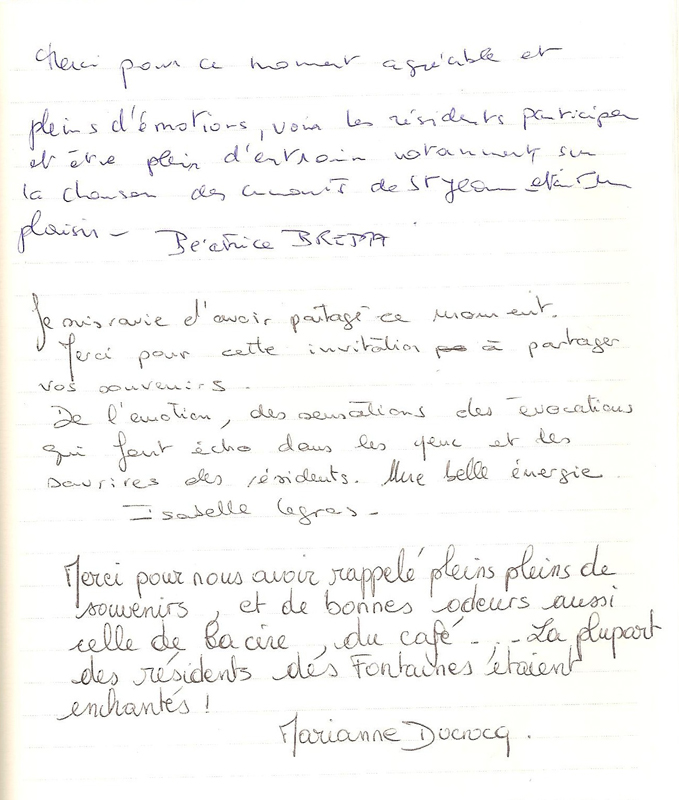 Merci pour ce moment agréable et
pleins d'émotions, voir les résidents participer
et être plein d'entrain notamment sur
la chanson des amants de St Jean était un
plaisir - Béatrice BREDA
Je suis ravie d'avoir partagé ce moment.
Merci pour cette invitation à partager
vos souvenirs.
De l'emotion, des sensations des évocations
qui font écho dans les yeux et les
sourires des résidents. Une belle énergie
Isabelle Legras -
Merci pour nous avoir rappelé pleins pleins de
souvenirs, et de bonnes odeurs aussi
celle de la cire, du café - . - La plupart
des résidents des Fontaines étaient
enchantés !
Marianne Ducrocq.